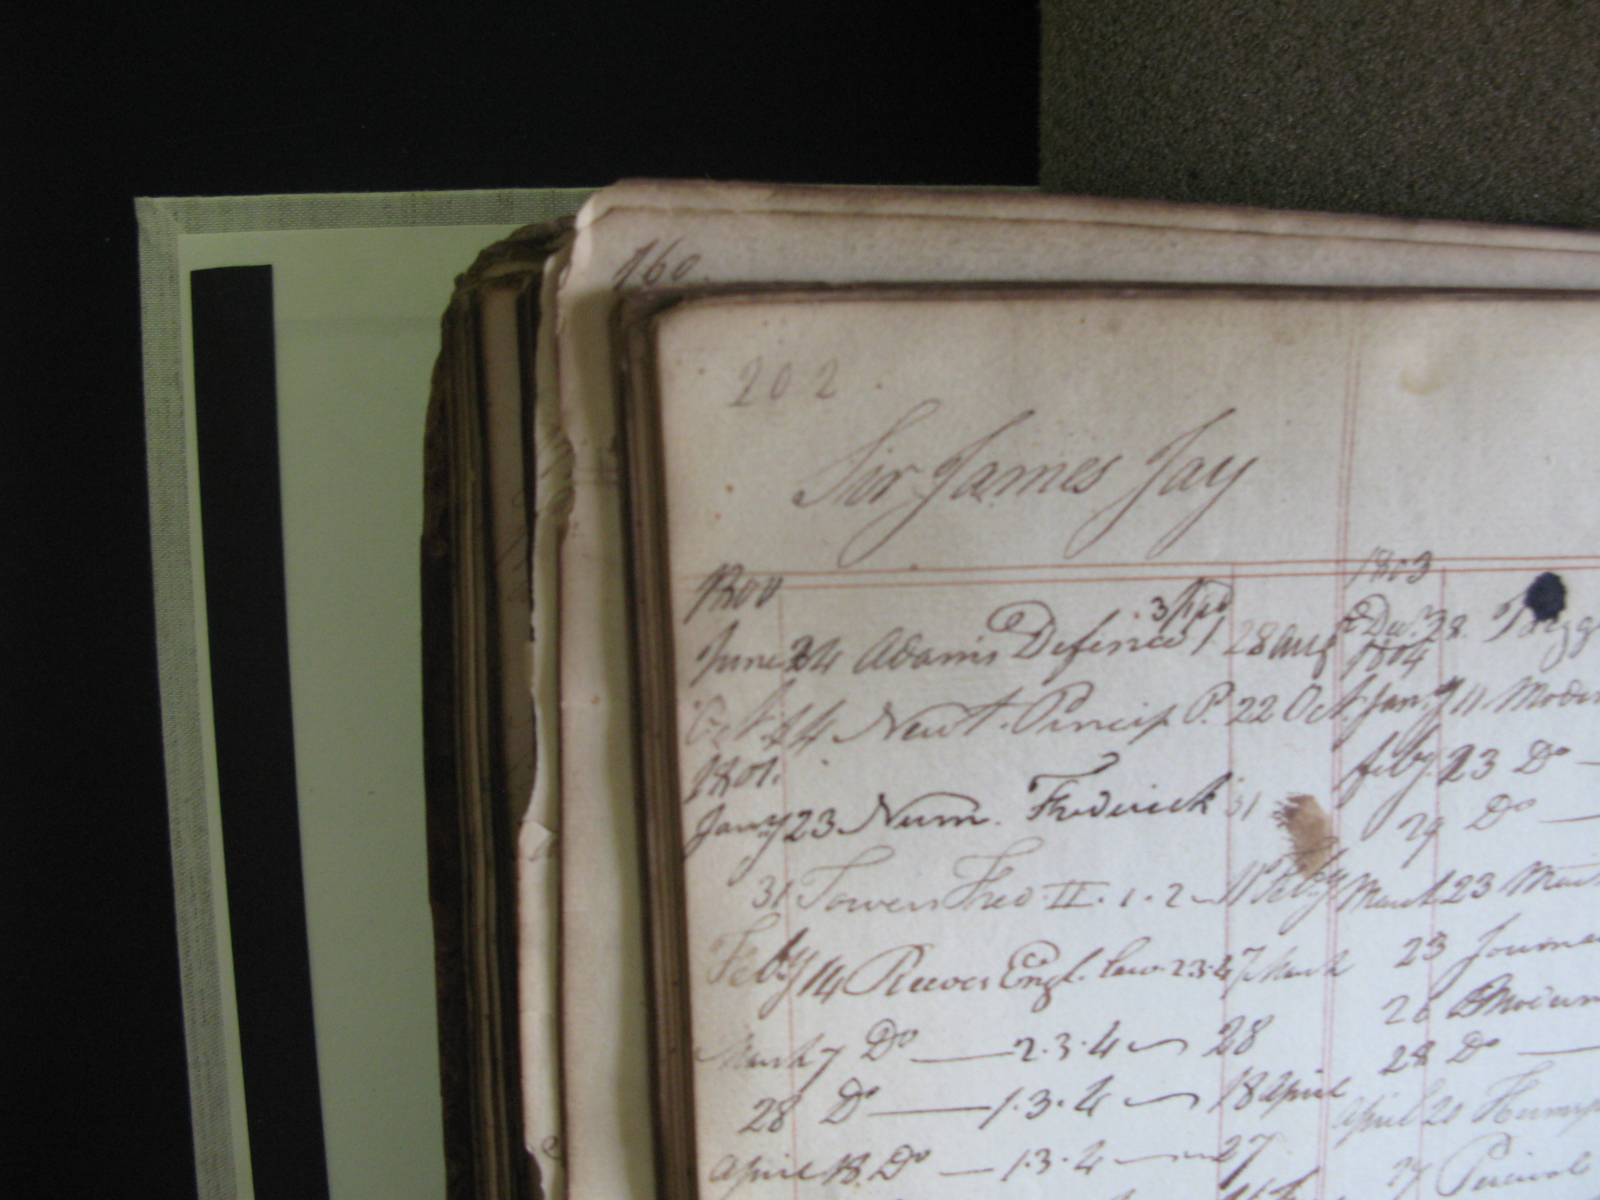 160.
202.
Sir James Jay
1800
June 24 Adams Defence 1. 3 28 Aug
Oct 24 Newt. Princip P. 22 Oct
1801.
Jany 23 Num. Frederick 31
31 Towers Fred II. 1. 2 11 Feby
Feby 14 Reeves Engl. Law. 2.3.4 7 March
March 7 Do — 2.3.4 28
28 Do — 1.3.4 18 April
April 18. Do — 1.3.4 27
1803
Dec. 28.
1804
Jany 11
feby. 23 Do —
29 Do —
March 23
23
26
28 Do —
April 20
27 Percival